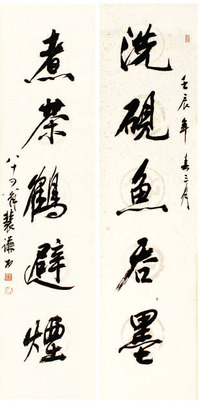 壬辰年春三月
洗硯魚吞墨
煮茶鶴避煙
八十四裴